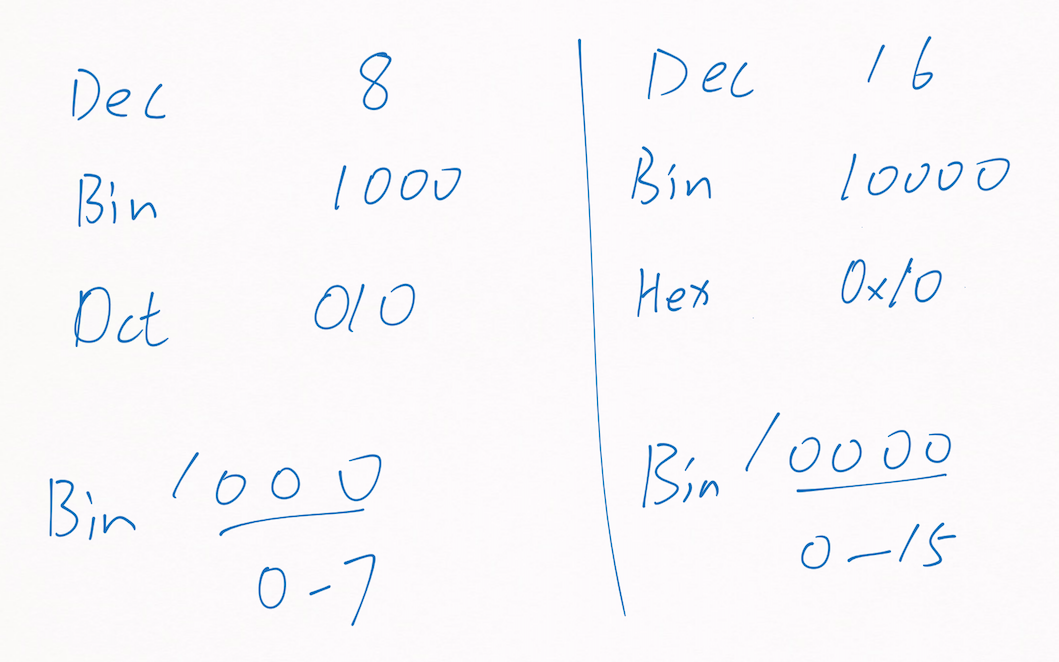 Dec 8
Bin 1000
Oct 010
Bin 1000
0-7
Dec 16
Bin 10000
Hex 0x10
Bin 10000
0-15